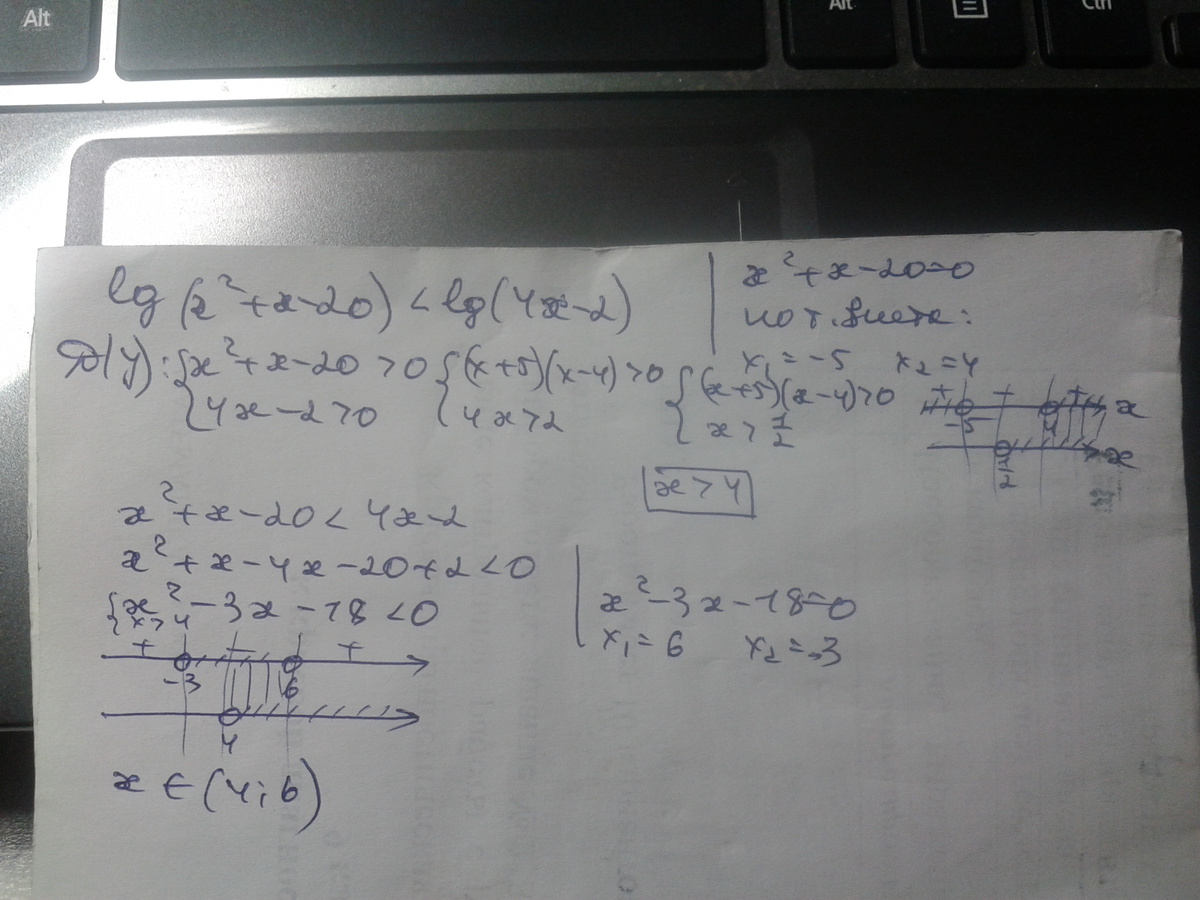 Alt
Alt
Ctrl
lg (x²+x-20) < lg(4x-2)
x²+x-20=0
по т. Виета:
x₁ = -5 x₂ = 4
D(y): {x²+x-20 > 0 {(x+5)(x-4) > 0 {(x+5)(x-4) > 0
{4x-2 > 0 {4x > 2 {x > 1/2
+ - +
-5 4 x
1/2 x
x > 4
x²+x-20 < 4x-2
x²+x-4x-20+2 < 0
{x²-3x-18 < 0
{x > 4
x²-3x-18=0
x₁ = 6 x₂ = -3
+ - +
-3 6
4
x ∈ (4; 6)